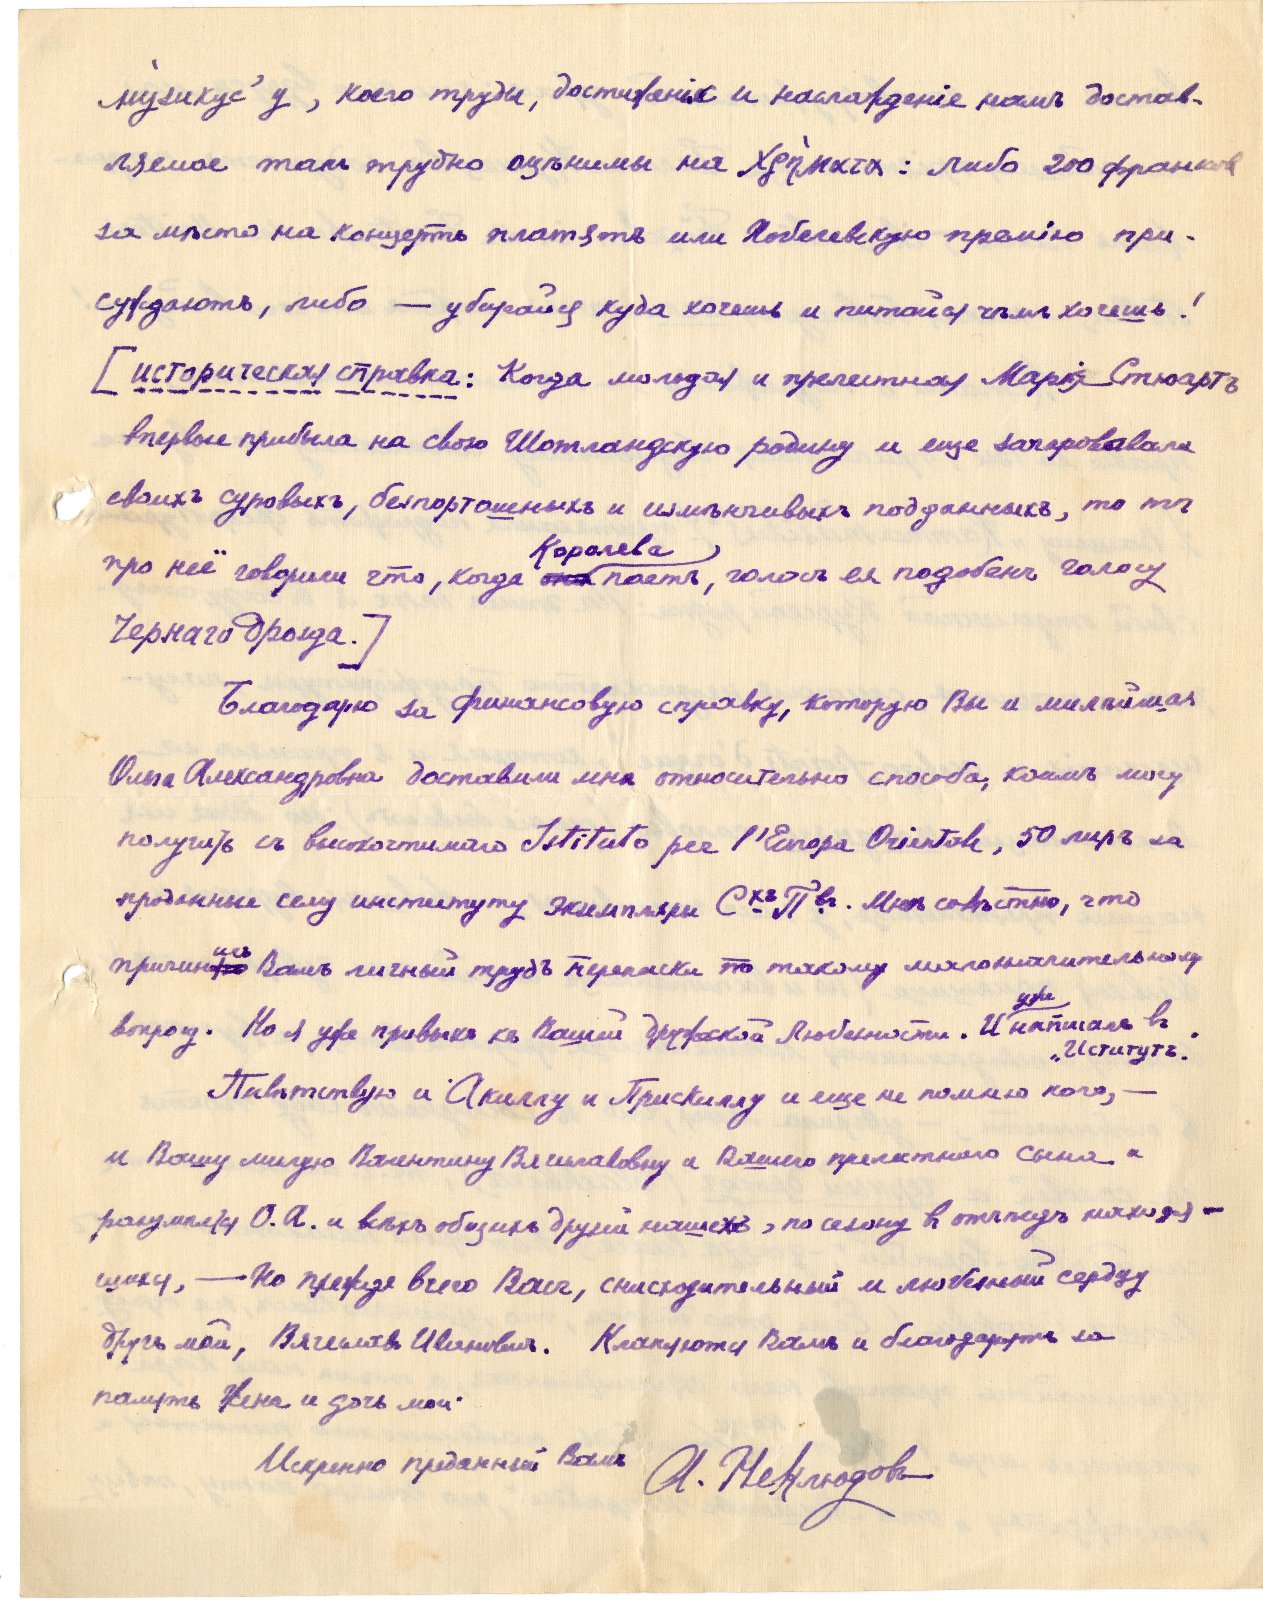 музикус'у, коего труды, достиженія и наслажденіе намъ достав-
ляемое такъ трудно оцѣнимы на χρήματα: либо 200 франковъ
за мѣсто на концертъ платятъ или Нобелевскую премію при-
суждаютъ, либо — убирайся куда хочешь и питайся чѣмъ хочешь!
[историческая справка: Когда молодая и прелестная Марія Стюартъ
впервые прибыла на свою Шотландскую родину и еще зачаровывала
своихъ суровыхъ, безпорташныхъ и измѣнчивыхъ подданныхъ, то тѣ
про неё говорили что, когда Королева поетъ, голосъ ея подобенъ голосу
Чернаго Дрозда.]
Благодарю за финансовую справку, которую Вы и милѣйшая
Ольга Александровна доставили мнѣ относительно способа, коимъ могу
получить съ высокочтимаго Istituto per l'Europa Orientale, 50 лиръ за
проданные сему институту экземпляры Схъ Пвъ. Мнѣ совѣстно, что
причинилъ Вамъ личный трудъ переписки по такому малозначительному
вопросу. Но я уже привыкъ къ Вашей дружеской любезности. И уже написалъ въ
„Иститутъ".
Пивѣтствую и Акиллу и Прискиллу и еще не помню кого, —
и Вашу милую Валентину Вячеславовну и Вашего прелестного сына и
разумѣется О.А. и всѣхъ общихъ друзей нашехъ, по сезону въ отъѣздѣ находя-
щихся, — Но прежде всего Васъ, снисходительный и любезный сердцу
другъ мой, Вячеславъ Ивановичъ. Кланяются Вамъ и благодарятъ за
память Жена и дочь мои.
Искренно преданный Вамъ А. Неклюдовъ